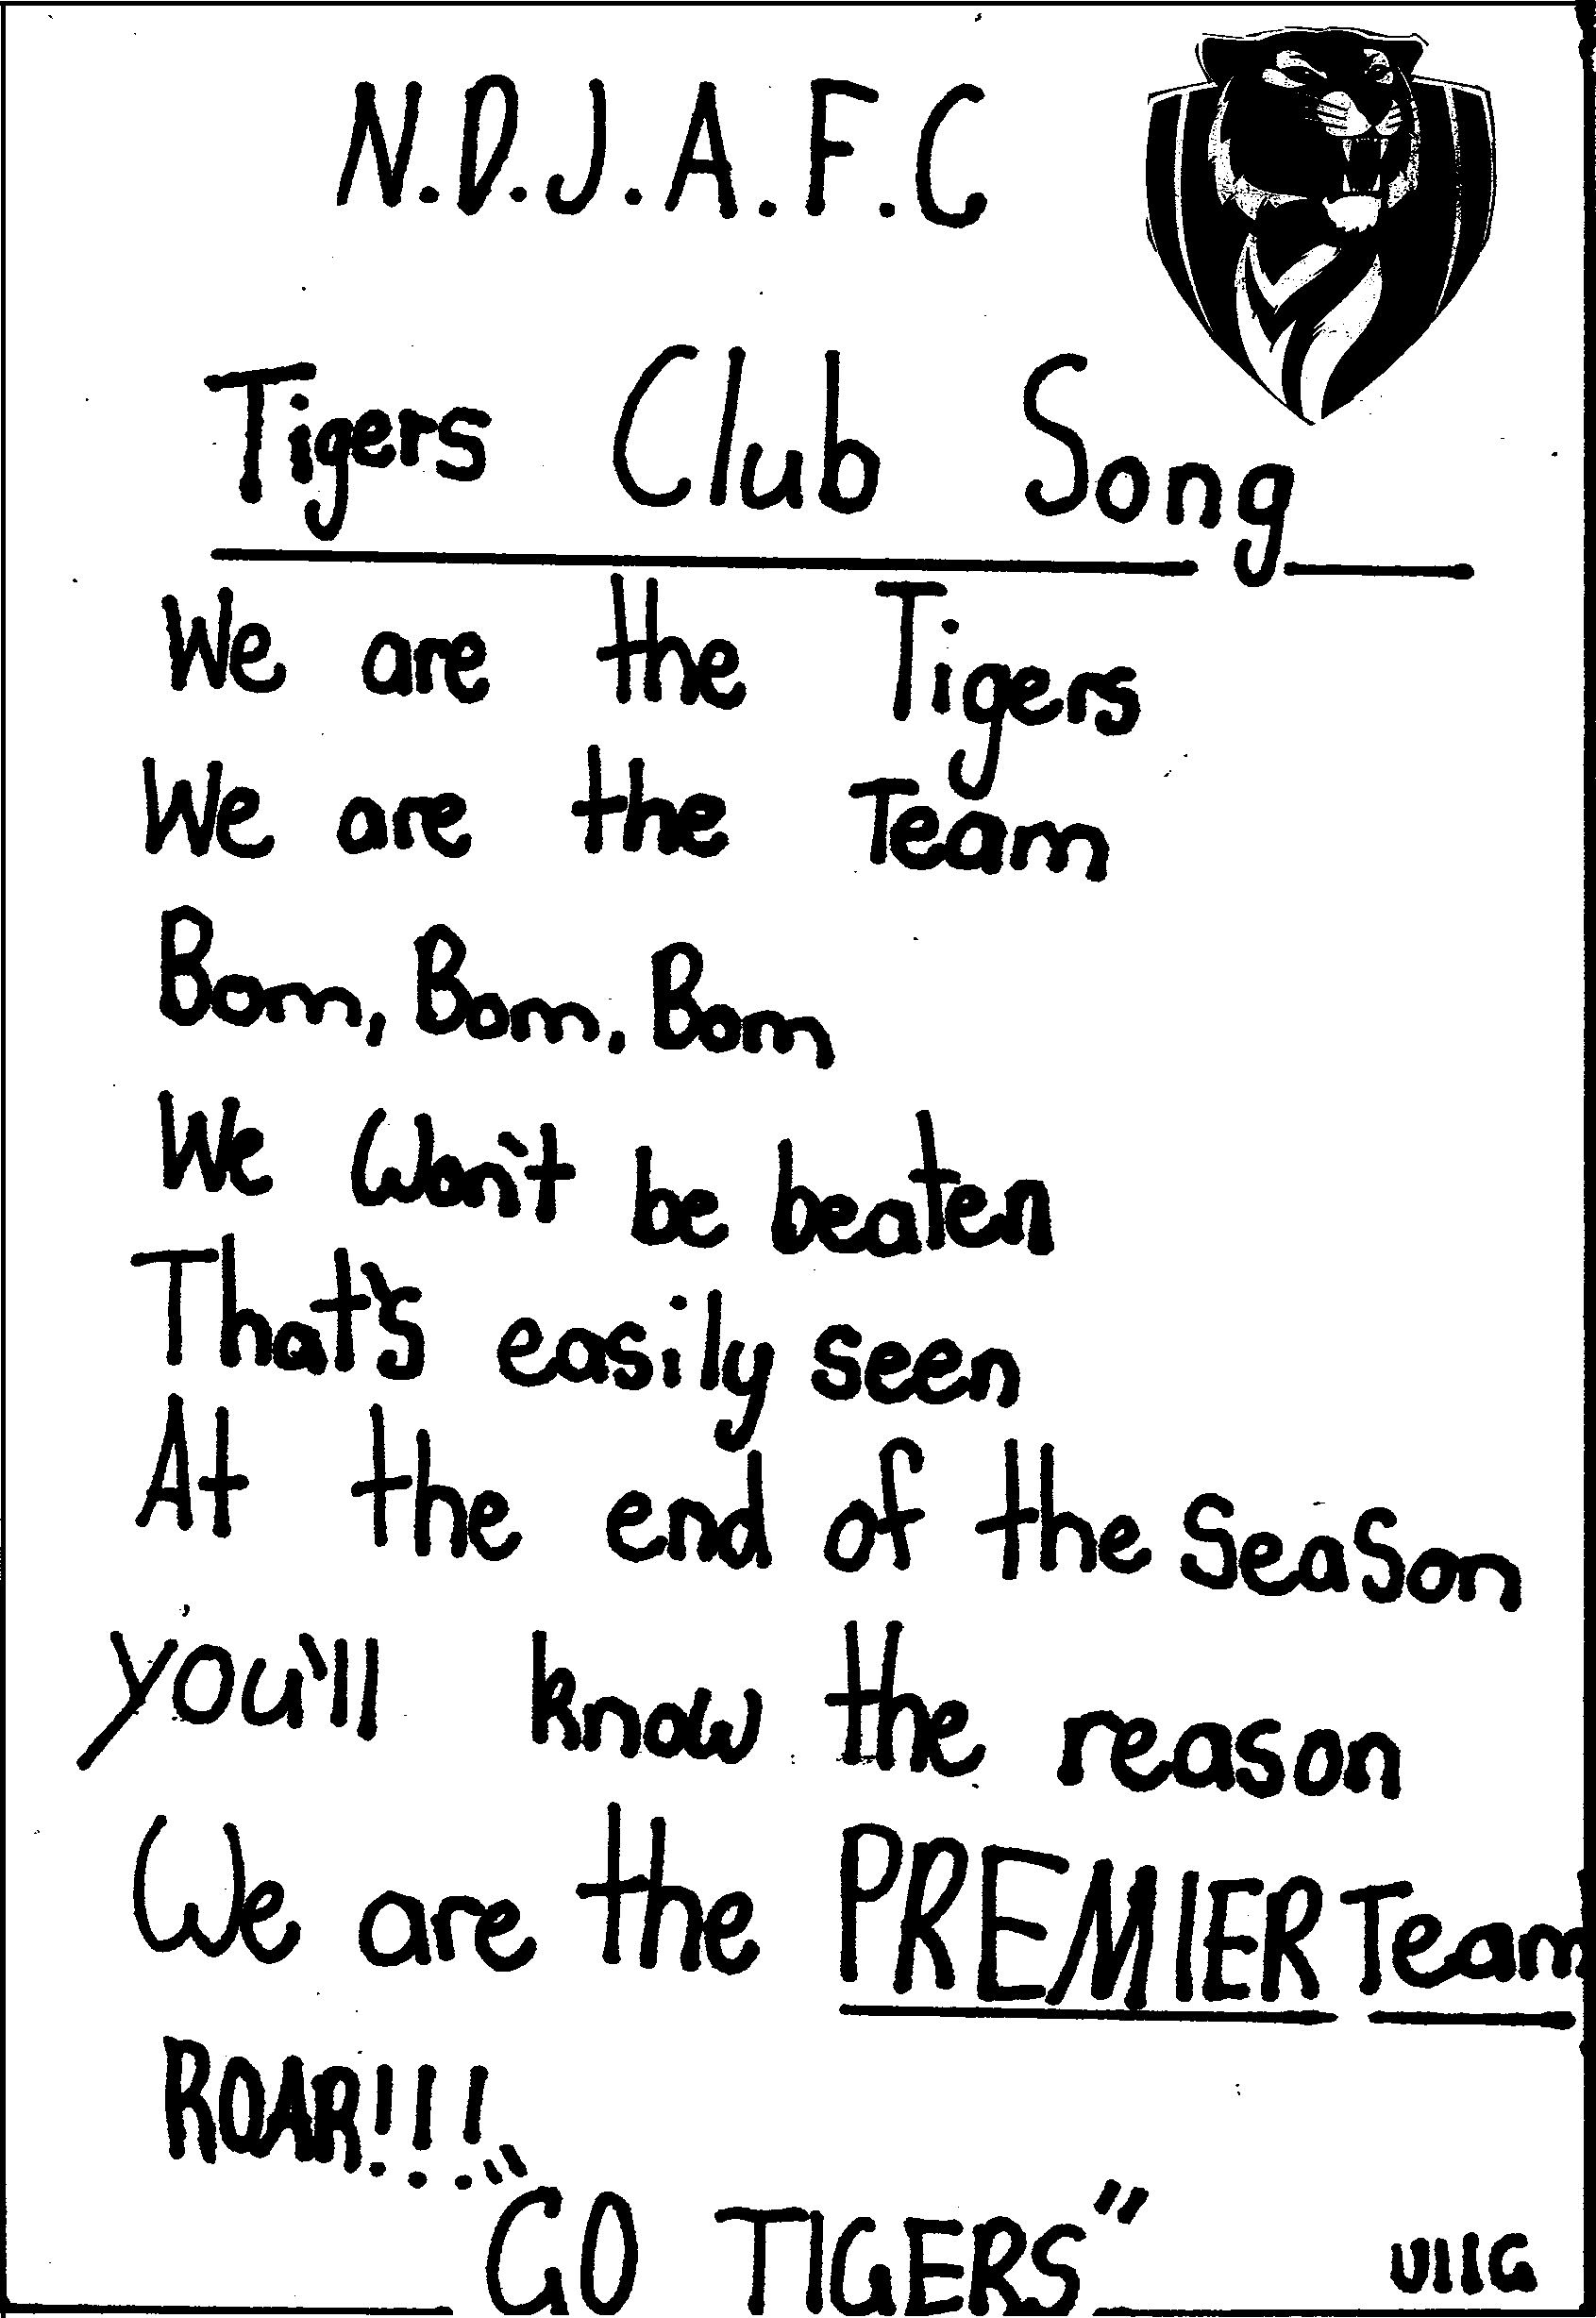 N.D.J.A.F.C
Tigers Club Song
We are the Tigers
We are the Team
Bom, Bom, Bom
We Won't be beaten
That's easily seen
At the end of the SeaSon
you'll know the reason
We are the PREMIER Team
ROAR!!!
"GO TIGERS"
U11G